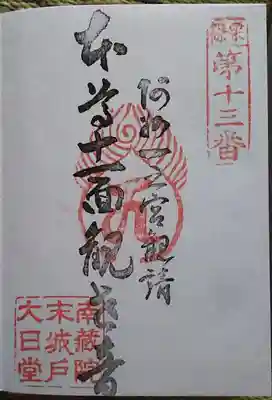 第十三番
阿州一之宮勧請
本尊十一面観世音
南蔵院
末城戸
大日堂